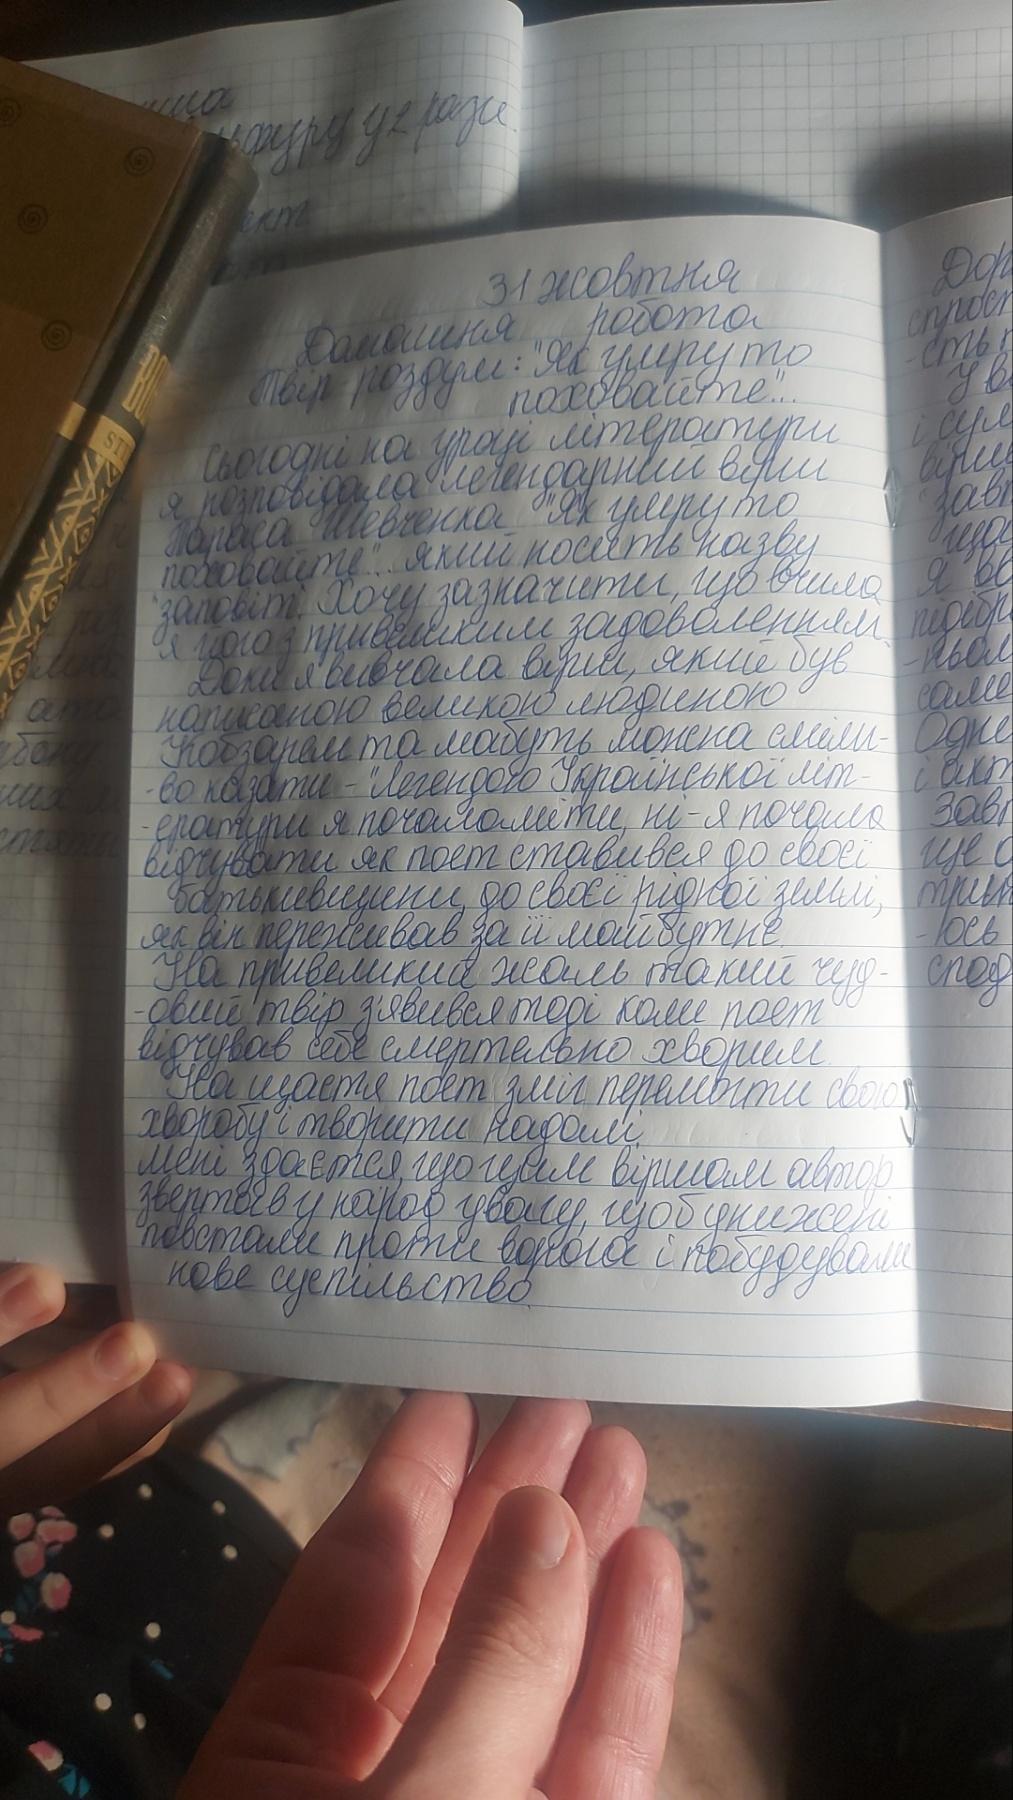 у 2 рази
31 жовтня
Домашня робота
Твір-роздум: "Як умру то
поховайте"...
Сьогодні на уроці літератури
я розповідала легендарний вірш
Тараса Шевченка "Як умру то
поховайте"... який носить назву
"заповіт". Хочу зазначити, що вчила
я його з превеликим задоволенням.
Доки я вивчала вірш, який був
написаною великою людиною
Кобзарем та мабуть можна сміли-
-во казати - "Легендою Української літ-
-ератури я почала
 ні-я почала
відчувати як поет ставився до своєї
батьківщини, до своєї рідної землі,
як він переживав за її майбутнє.
На превеликий жаль такий чуд-
-овий твір з'явився тоді коли поет
відчував себе смертельно хворим.
На щастя поет зміг перемогти свою
хворобу і творити надалі.
Мені здається, що цим віршом автор
звертав у народ увагу, щоб унижені
повстали проти ворога і побудували
нове суспільство.
Дор
спрос
-сть
У в
і сум
вірш
завт
щас
я во
підібр
-ньом
саме
Одне
і акт
Завт
ще
трим
-юсь
спод